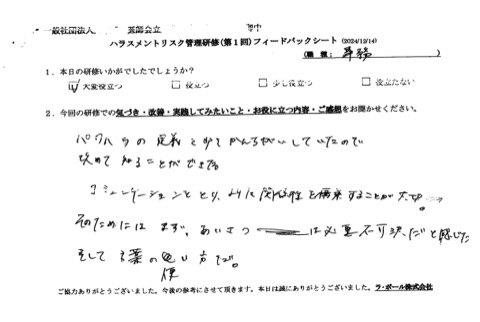 一般社団法人 医師会立 御中
ハラスメントリスク管理研修(第1回)フィードバックシート (2024/12/14)
(職種: 事務 )
1. 本日の研修いかがでしたでしょうか?
☑ 大変役立つ □ 役立つ □ 少し役立つ □ 役立たない
2. 今回の研修での気づき・改善・実践してみたいこと・お役に立つ内容・ご感想をお聞かせください。
パワハラの定義と少しかんちがいしていたので
改めて知ることができた
コミュニケーションをとり、よりよい関係性を構築することが大切。
そのためにはまず、あいさつは必要不可欠、だと感じた
そして言葉の使い方で。
ご協力ありがとうございました。今後の参考にさせて頂きます。本日は誠にありがとうございました。ラ・ポール株式会社